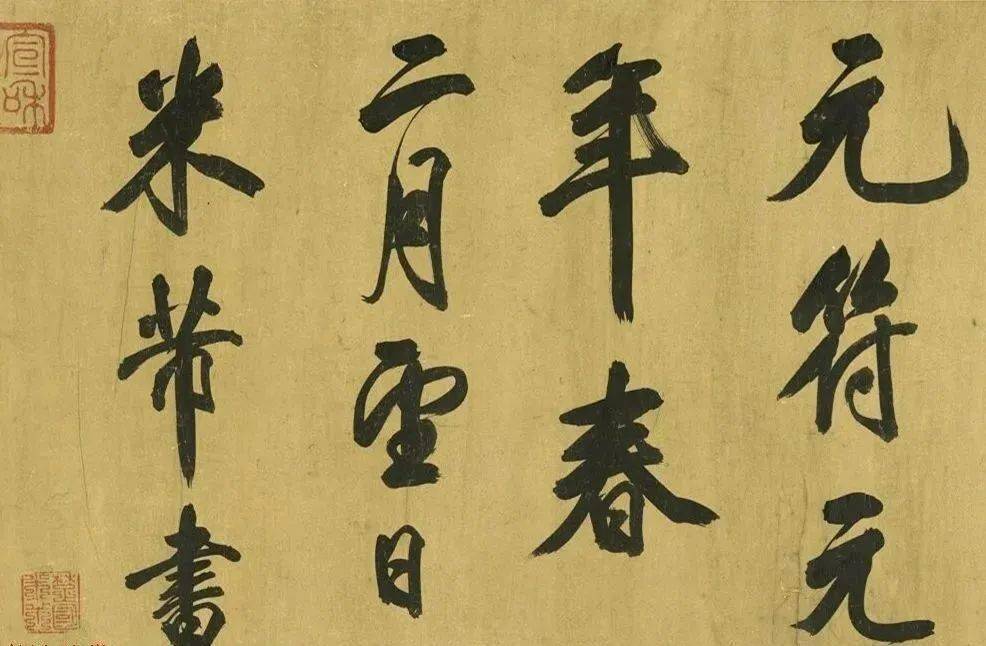 元符元
年春
二月望日
米芾書
宣和